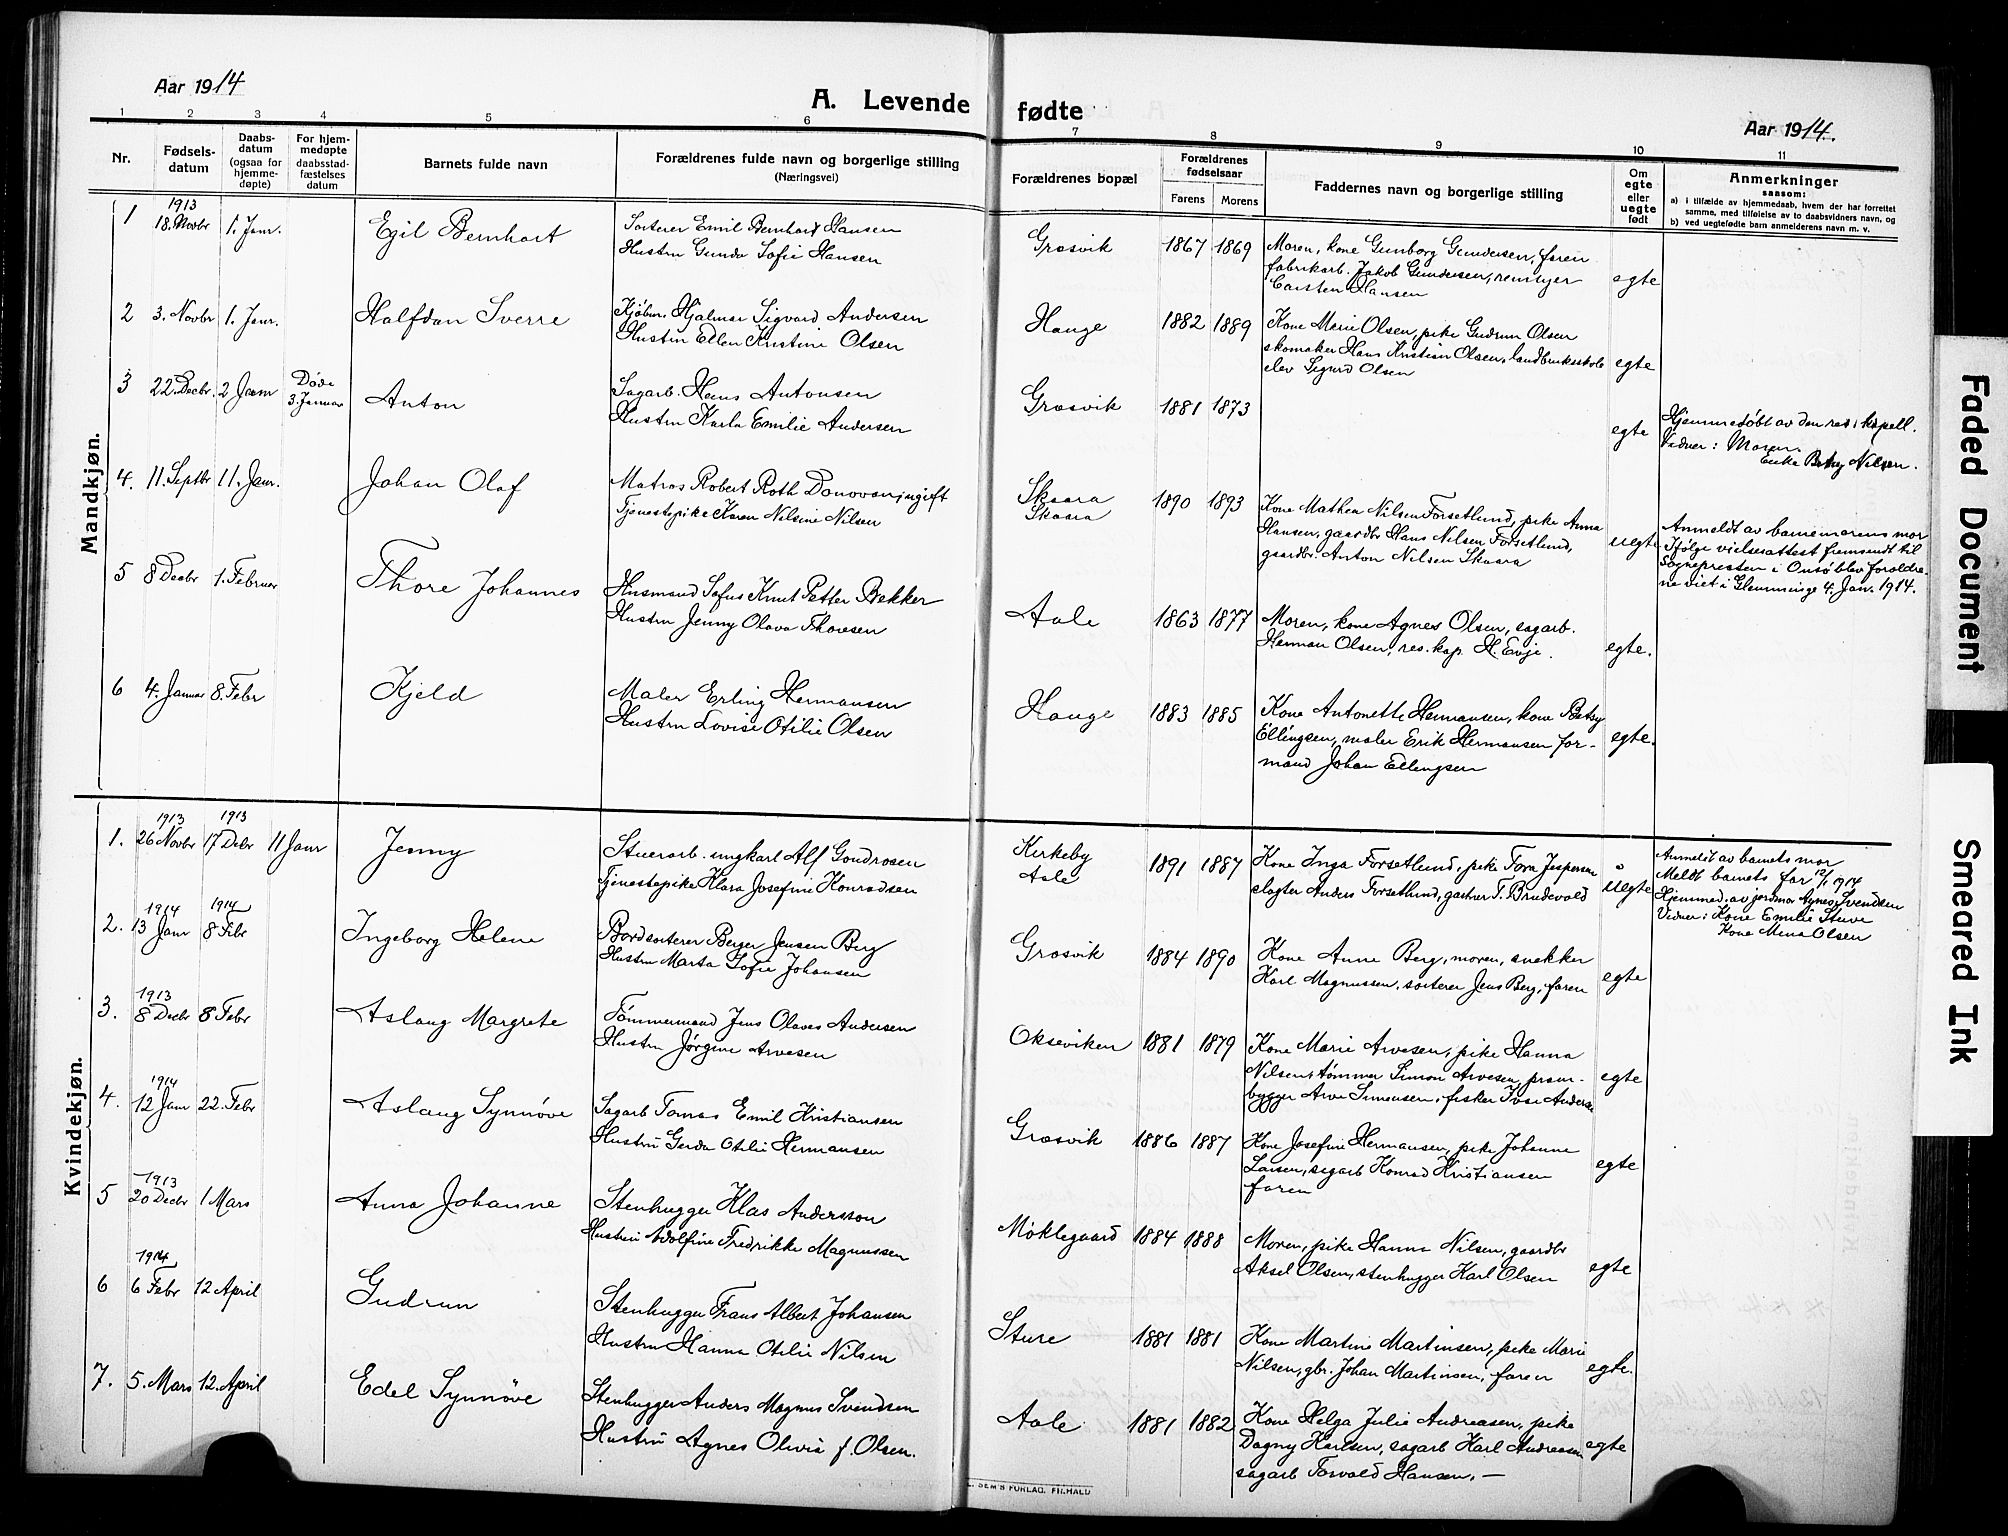 Aar 1914
A. Levende fødte
Aar 1914.
1 2 3 4 5 6 7 8 9 10 11
Nr.
Fødsels-
datum
Daabs-
datum
(ogsaa for
hjemme-
døpte)
For hjem-
medøpte
daabsstad-
fæstelses
datum
Barnets fulde navn
Forældrenes fulde navn og borgerlige stilling
(Næringsvei)
Forældrenes bopæl
Forældrenes
fødselsaar
Farens Morens
Faddernes navn og borgerlige stilling
Om
egte
eller
uegte
født
Anmerkninger
saasom:
a) i tilfælde av hjemmedaab, hvem der har forrettet
samme, med tilføielse av to daabsvidners navn, og
b) ved uegtefødte barn anmelderens navn m. v.
Mandkjøn.
1 1913 18. Novbr 1. Janr. Egil Bernhart
Sorterer Emil Bernhart Hansen
Hustru Gunda Sofie Hansen
Græsvik 1867 1869
Moren, kone Gunborg Gundersen, faren
fabrikarb. Jakob Gundersen,
Carsten Hansen
egte
2 3. Novbr 1. Janr. Halfdan Sverre
Kjøbm. Hjalmar Sigvard Andersen
Hustru Ellen Kristine Olsen
Hauge 1882 1889
Kone Marie Olsen, pike Gudrun Olsen
skomaker Hans Kristian Olsen, landbruksskole
elev Sigurd Olsen
egte
3 22. Decbr. 2 Janr Døde 3. Januar Anton
Sagarb. Hans Antonsen
Hustru Karla Emilie Andersen
Græsvik 1881 1873
egte
Hjemmedøbt av den res. kapell.
Vidner: Moren.
Enke Betsy Nilsen.
4. 11. Septbr 11. Janr. Johan Olaf
Matros Robert Roth Donovan, ugift
Tjenestepike Karen Nilsine Nilsen
Skaara
Skaara
1890 1893
Kone Mathea Nilsen Forsetlund, pike Anna
Hansen, gaardbr Hans Nilsen Forsetlund,
gaardbr. Anton Nilsen Skaara
uegte
Anmeldt av barnemorens mor
Ifølge vielsesattest fremsendt til
sognepresten i Onsø blev foreldre-
ne viet i Glemminge 4. Jan. 1914.
5 8 Decbr 1. Februar Thore Johannes
Husmand Sofus Knut Petter Bekker
Hustru Jenny Olava Thoresen
Aale 1863 1877
Moren, kone Agnes Olsen, sagarb.
Herman Olsen, res. kap. H. Evje.
egte.
6 4. Januar 8. Febr Kjeld
Maler Erling Hermansen
Hustru Lovise Otilie Olsen
Hauge 1883 1885
Kone Antonette Hermansen, kone Betsy
Ellingsen, maler Erik Hermansen for-
mand Johan Ellingsen
egte.
Kvindekjøn.
1. 1913 26 Novbr 1913 17 Debr 11 Janr Jenny
Stuerarb. ungkarl Alf Gondrosen
Tjenestepike Klara Josefine Konradsen
Kirkeby
Aale
1891 1887
Kone Inga Forsetlund, pike Tora Jespersen
slagter Anders Forsetlund, gartner T. Brudevold
uegte
Anmeldt av barnets mor
Meldt barnets far 12/1 1914
Hjemmed. av jordmor Agnes Svendsen
Vidner: Kone Emilie Sture
Kone Mina Olsen
2. 1914 13 Janr 1914 8 Febr Ingeborg Helene
Bordsorterer Berger Jensen Berg
Hustru Marta Sofie Johansen
Græsvik 1884 1890
Kone Anne Berg, moren, snekker
Karl Magnussen, sorterer Jens Berg, faren
egte
3. 1913 8 Decbr 8 Febr Aslaug Margrete
Tømmermand Jens Olaves Andersen
Hustru Jørgine Arvesen
Okseviken 1881 1879
Kone Marie Arvesen, pike Hanna
Nilsen, tømmer Simon Arvesen, pram-
bygger Arve Simensen, fisker Ivar Anderse
egte
4. 1914 12 Janr 22. Febr Aslaug Synnøve
Sagarb Tomas Emil Kristiansen
Hustru Gerda Otilie Hermansen
Græsvik 1886 1887
Kone Josefine Hermansen, pike Johanne
Larsen, sagarb Konrad Kristiansen
faren
egte
5 1913 20 Decbr 1 Mars Anna Johanne
Stenhugger Klas Andersson
Hustru Adolfine Fredrikke Magnussen
Møklegaard 1884 1888
Moren, pike Hanna Nilsen, gaardbr
Aksel Olsen, stenhugger Karl Olsen
egte
6 1914 6 Febr 12 April Gudrun
Stenhugger Frans Albert Johansen
Hustru Hanna Otilie Nilsen
Sture 1881 1881
Kone Martine Martinsen, pike Marie
Nilsen, gbr. Johan Martinsen, faren
egte.
7. 5. Mars 12. April Edel Synnøve
Stenhugger Anders Magnus Svendsen
Hustru Agnes Olivia f. Olsen.
Aale 1881 1882
Kone Helga Julie Andreasen, pike
Dagny Karlsen, sagarb Karl Andreasen
sagarb Torvald Hansen. —
egte
SEM'S FORLAG. FR.HALD
Faded Document
Smeared Ink